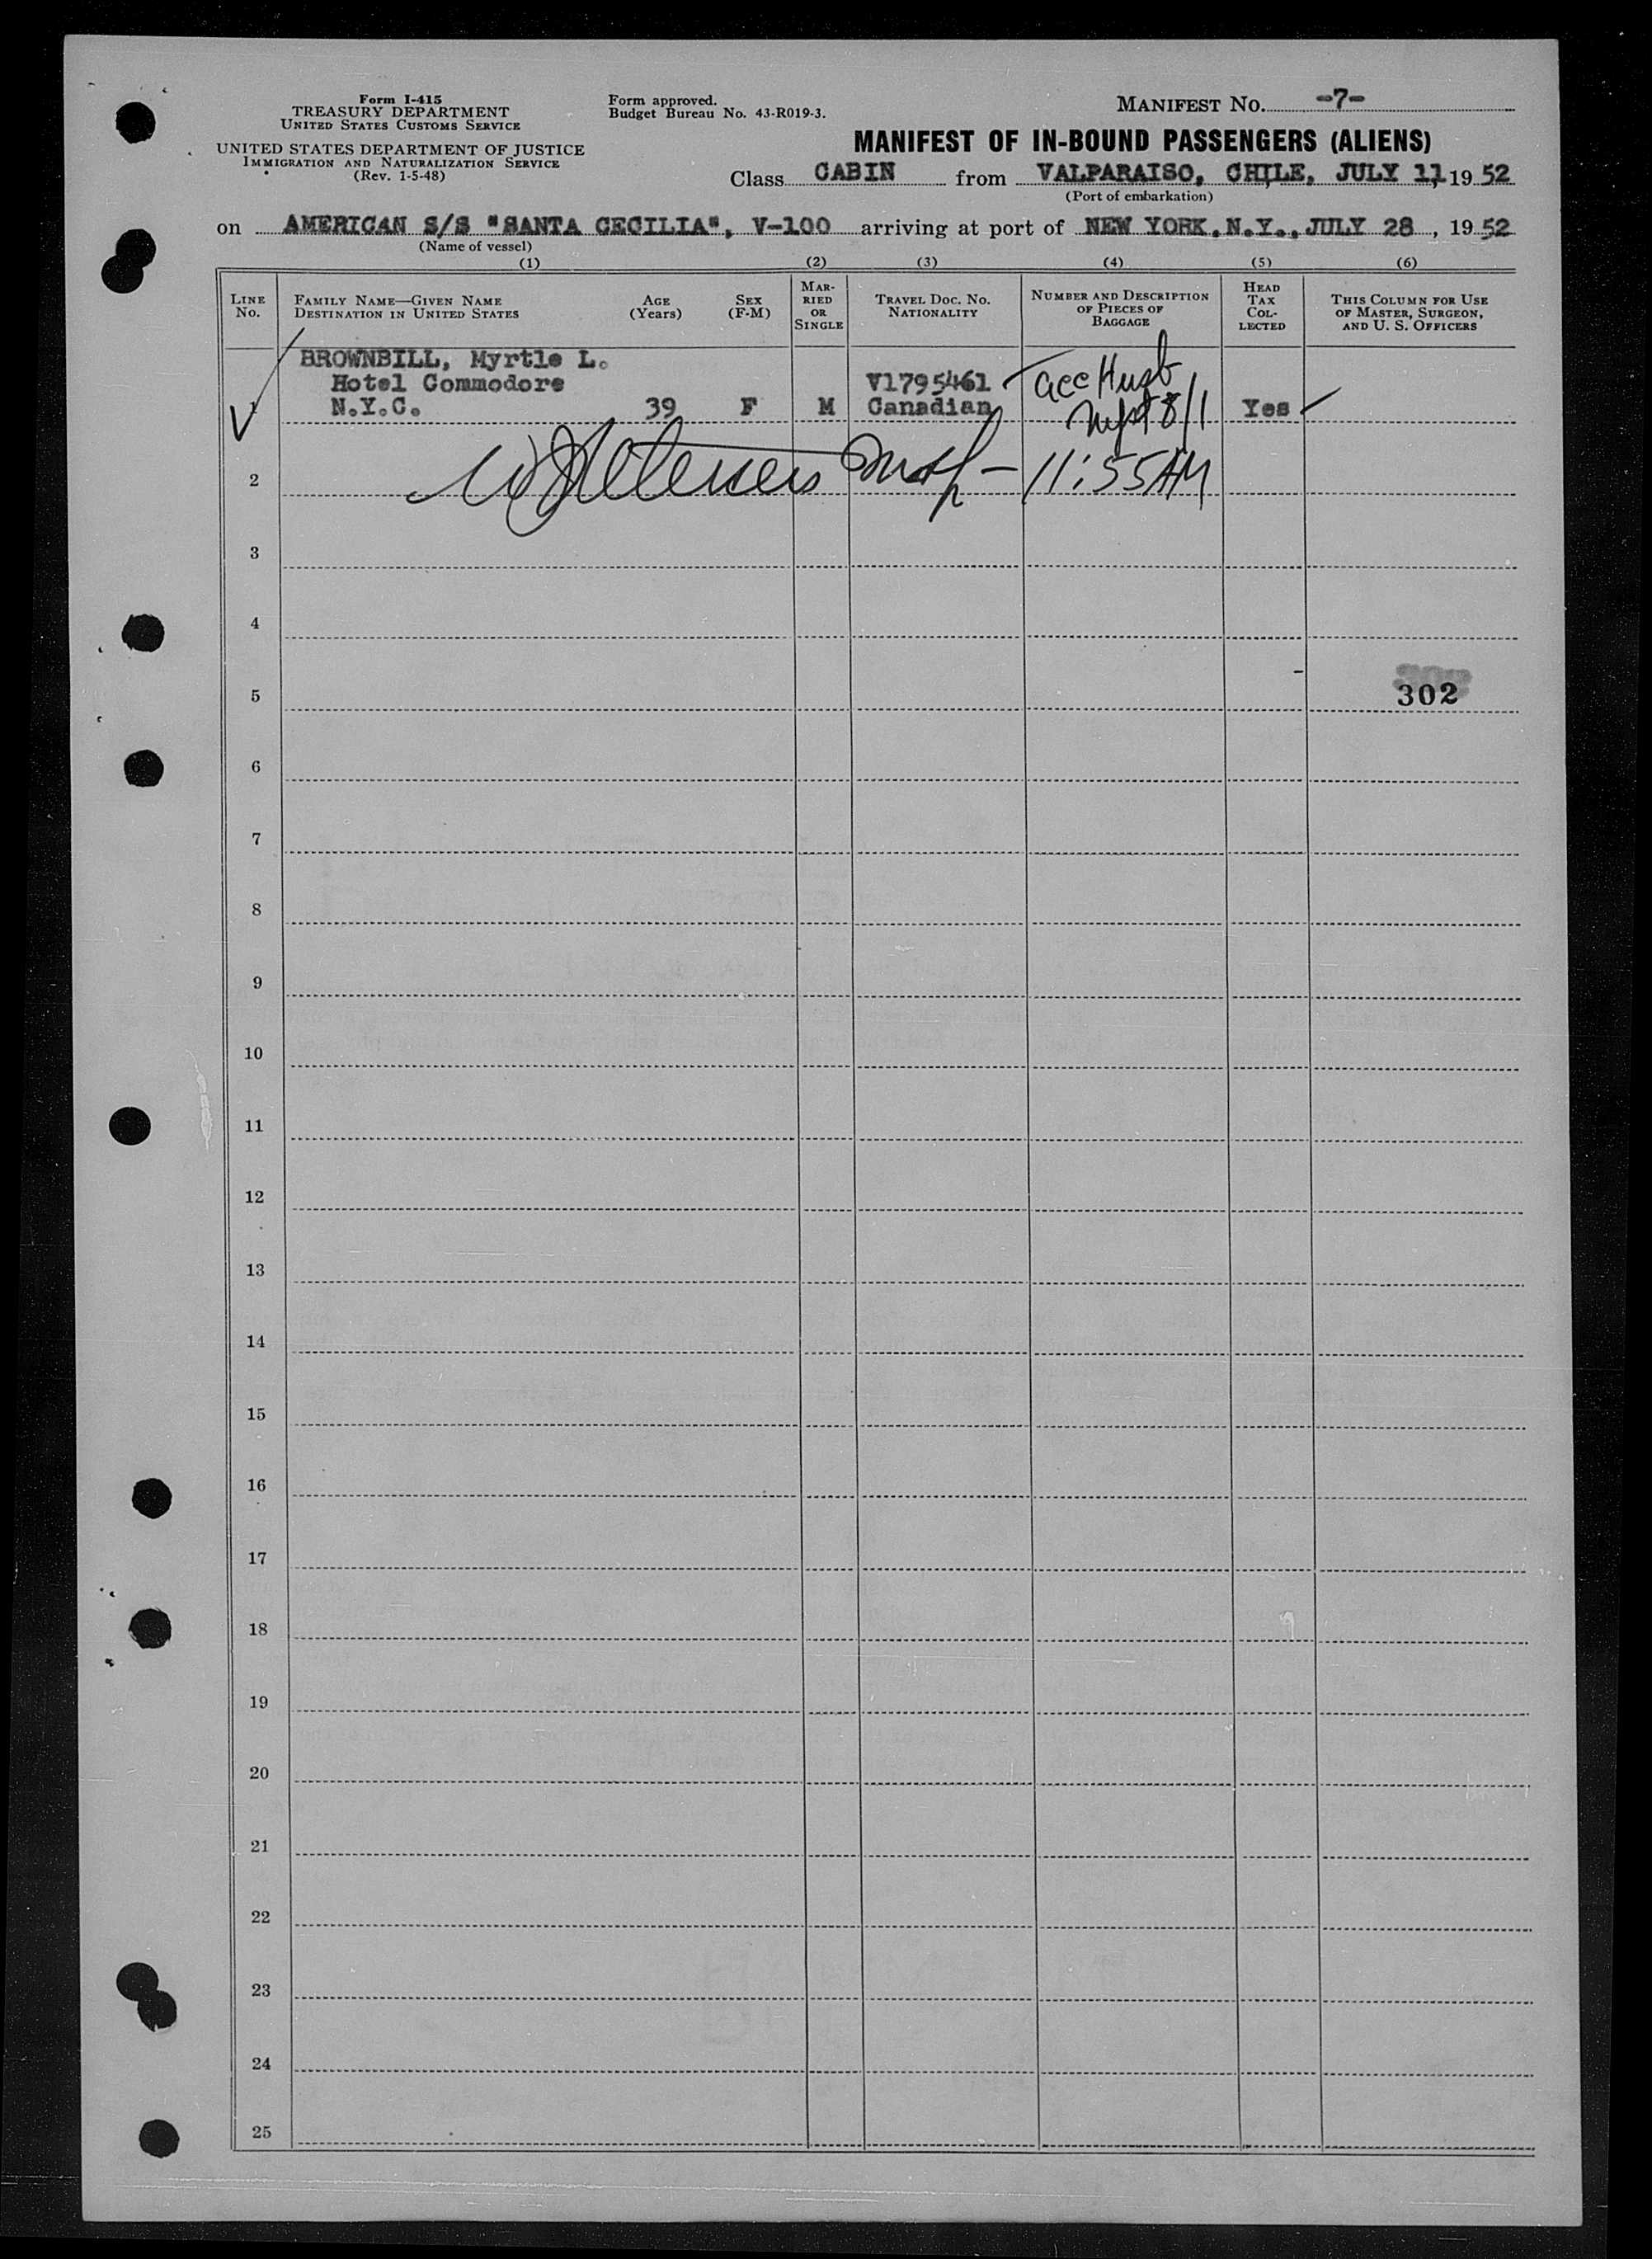 Form I-415
TREASURY DEPARTMENT
UNITED STATES CUSTOMS SERVICE
UNITED STATES DEPARTMENT OF JUSTICE
IMMIGRATION AND NATURALIZATION SERVICE
(Rev. 1-5-48)
Form approved.
Budget Bureau No. 43-R019-3.
MANIFEST No. -7-
MANIFEST OF IN-BOUND PASSENGERS (ALIENS)
Class CABIN from VALPARAISO, CHILE, JULY 11, 19 52
(Port of embarkation)
on AMERICAN S/S "SANTA CECILIA", V-100 arriving at port of NEW YORK, N.Y., JULY 28, 19 52
(Name of vessel)
(1) (2) (3) (4) (5) (6)
LINE No.
FAMILY NAME—GIVEN NAME
DESTINATION IN UNITED STATES
AGE (Years)
SEX (F-M)
MARRIED OR SINGLE
TRAVEL DOC. No.
NATIONALITY
NUMBER AND DESCRIPTION OF PIECES OF BAGGAGE
HEAD TAX COLLECTED
THIS COLUMN FOR USE OF MASTER, SURGEON, AND U. S. OFFICERS
BROWNBILL, Myrtle L.
Hotel Commodore V1795461 acc Husb
1 N.Y.C. 39 F M Canadian 8/1 Yes
2 11:55 AM
3
4
5 302
6
7
8
9
10
11
12
13
14
15
16
17
18
19
20
21
22
23
24
25